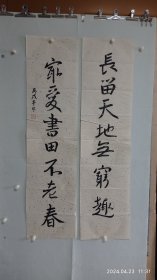 長留天地無窮趣
最愛書田不老春
2024.04.23 11:31